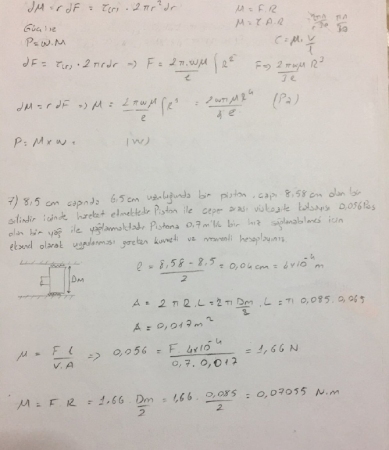 dM = r dF = τ(r) · 2πr²dr
M = F.R
M = τ.A.R
P = W.M
τ = μ · V/l
dF = τ(r) · 2πrdr => F = 2πωμ/e ∫
F => 2πωμ R³/3e
dM = r dF => M = 2πωμ/e ∫ (P2)
P = M × w = (W)
7) 8,5 cm çapında 6.5 cm uzunluğunda bir piston, çapı 8.58 cm olan bir
silindir içinde hareket etmektedir. Piston ile
olan bir yağ ile yağlanmaktadır. Pistona 0,7 m/s bir hız sağlanabilmesi için
eksenel olarak uygulanması gereken kuvveti ve momenti hesaplayınız.
Dm
l = 8,58 - 8,5/2 = 0,04 cm = 4x10⁻⁴ m
A = 2πR.L = 2π Dm/2 . L = π 0,085. 0,065
A = 0,017 m²
μ = F l/V.A => 0,056 = F 4x10⁻⁴/0,7. 0,017 = 1,66 N
M = F R = 1,66 Dm/2 = 1,66 . 0,085/2 = 0,07055 N.m